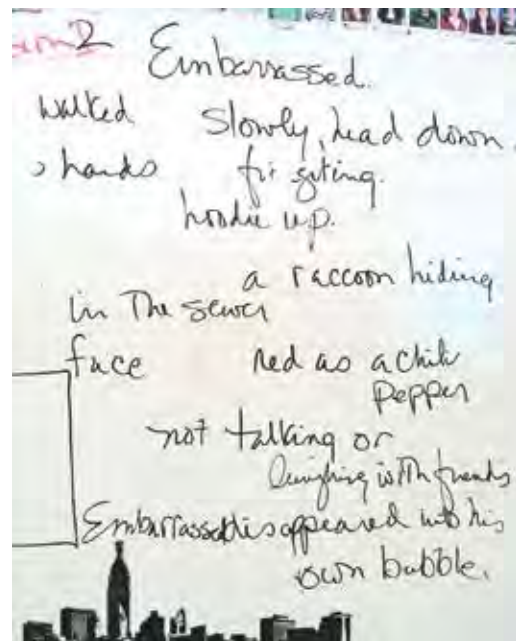 2
Embarrassed.
walked slowly, head down.
hands figiting.
hoodie up.
a raccoon hiding
in The sewer
face red as a chili
pepper
not talking or
laughing with friends
Embarrassed disappeared into his
own bubble.